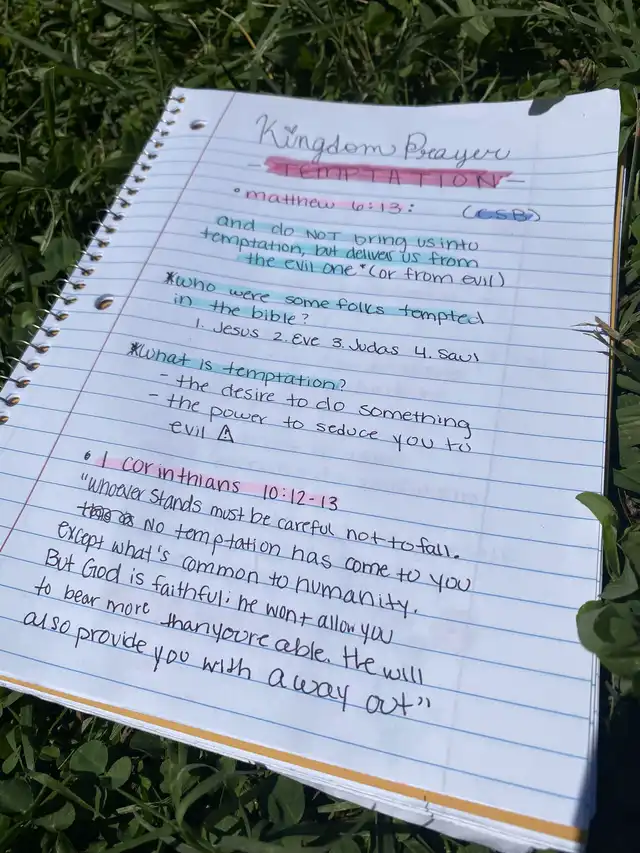 Kingdom Prayer
- TEMPTATION -
• matthew 6:13: (CSB)
and do NOT bring us into
temptation, but deliver us from
the evil one * (or from evil)
*who were some folks tempted
in the bible?
1. Jesus 2. Eve 3. Judas 4. Saul
*what is temptation?
- the desire to do something
- the power to seduce you to
evil
• 1 corinthians 10:12-13
"whoever stands must be careful not to fall.
No temptation has come to you
except what's common to humanity.
But God is faithful; he wont allow you
to bear more than youre able. He will
also provide you with a way out"